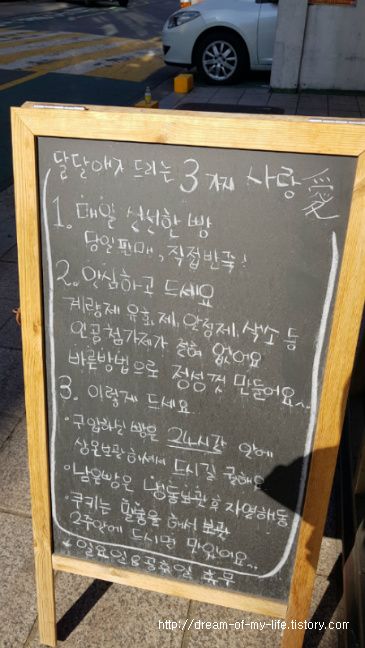 달달애가 드리는 3가지 사랑 愛
1. 매일 신선한 빵
당일판매, 직접반죽!
2. 안심하고 드세요
계량제 유화제, 안정제, 색소 등
인공첨가제가 전혀 없어요
바른방법으로 정성껏 만들어요~
3. 이렇게 드세요
·구입하신 빵은 24시간 안에
상온보관하셔서 드시길 권해요
·남은빵은 냉동보관 후 자연해동
·쿠키는 밀봉을 해서 보관
2주안에 드시면 맛있어요~
* 일요일 & 공휴일 휴무
http://dream-of-my-life.tistory.com